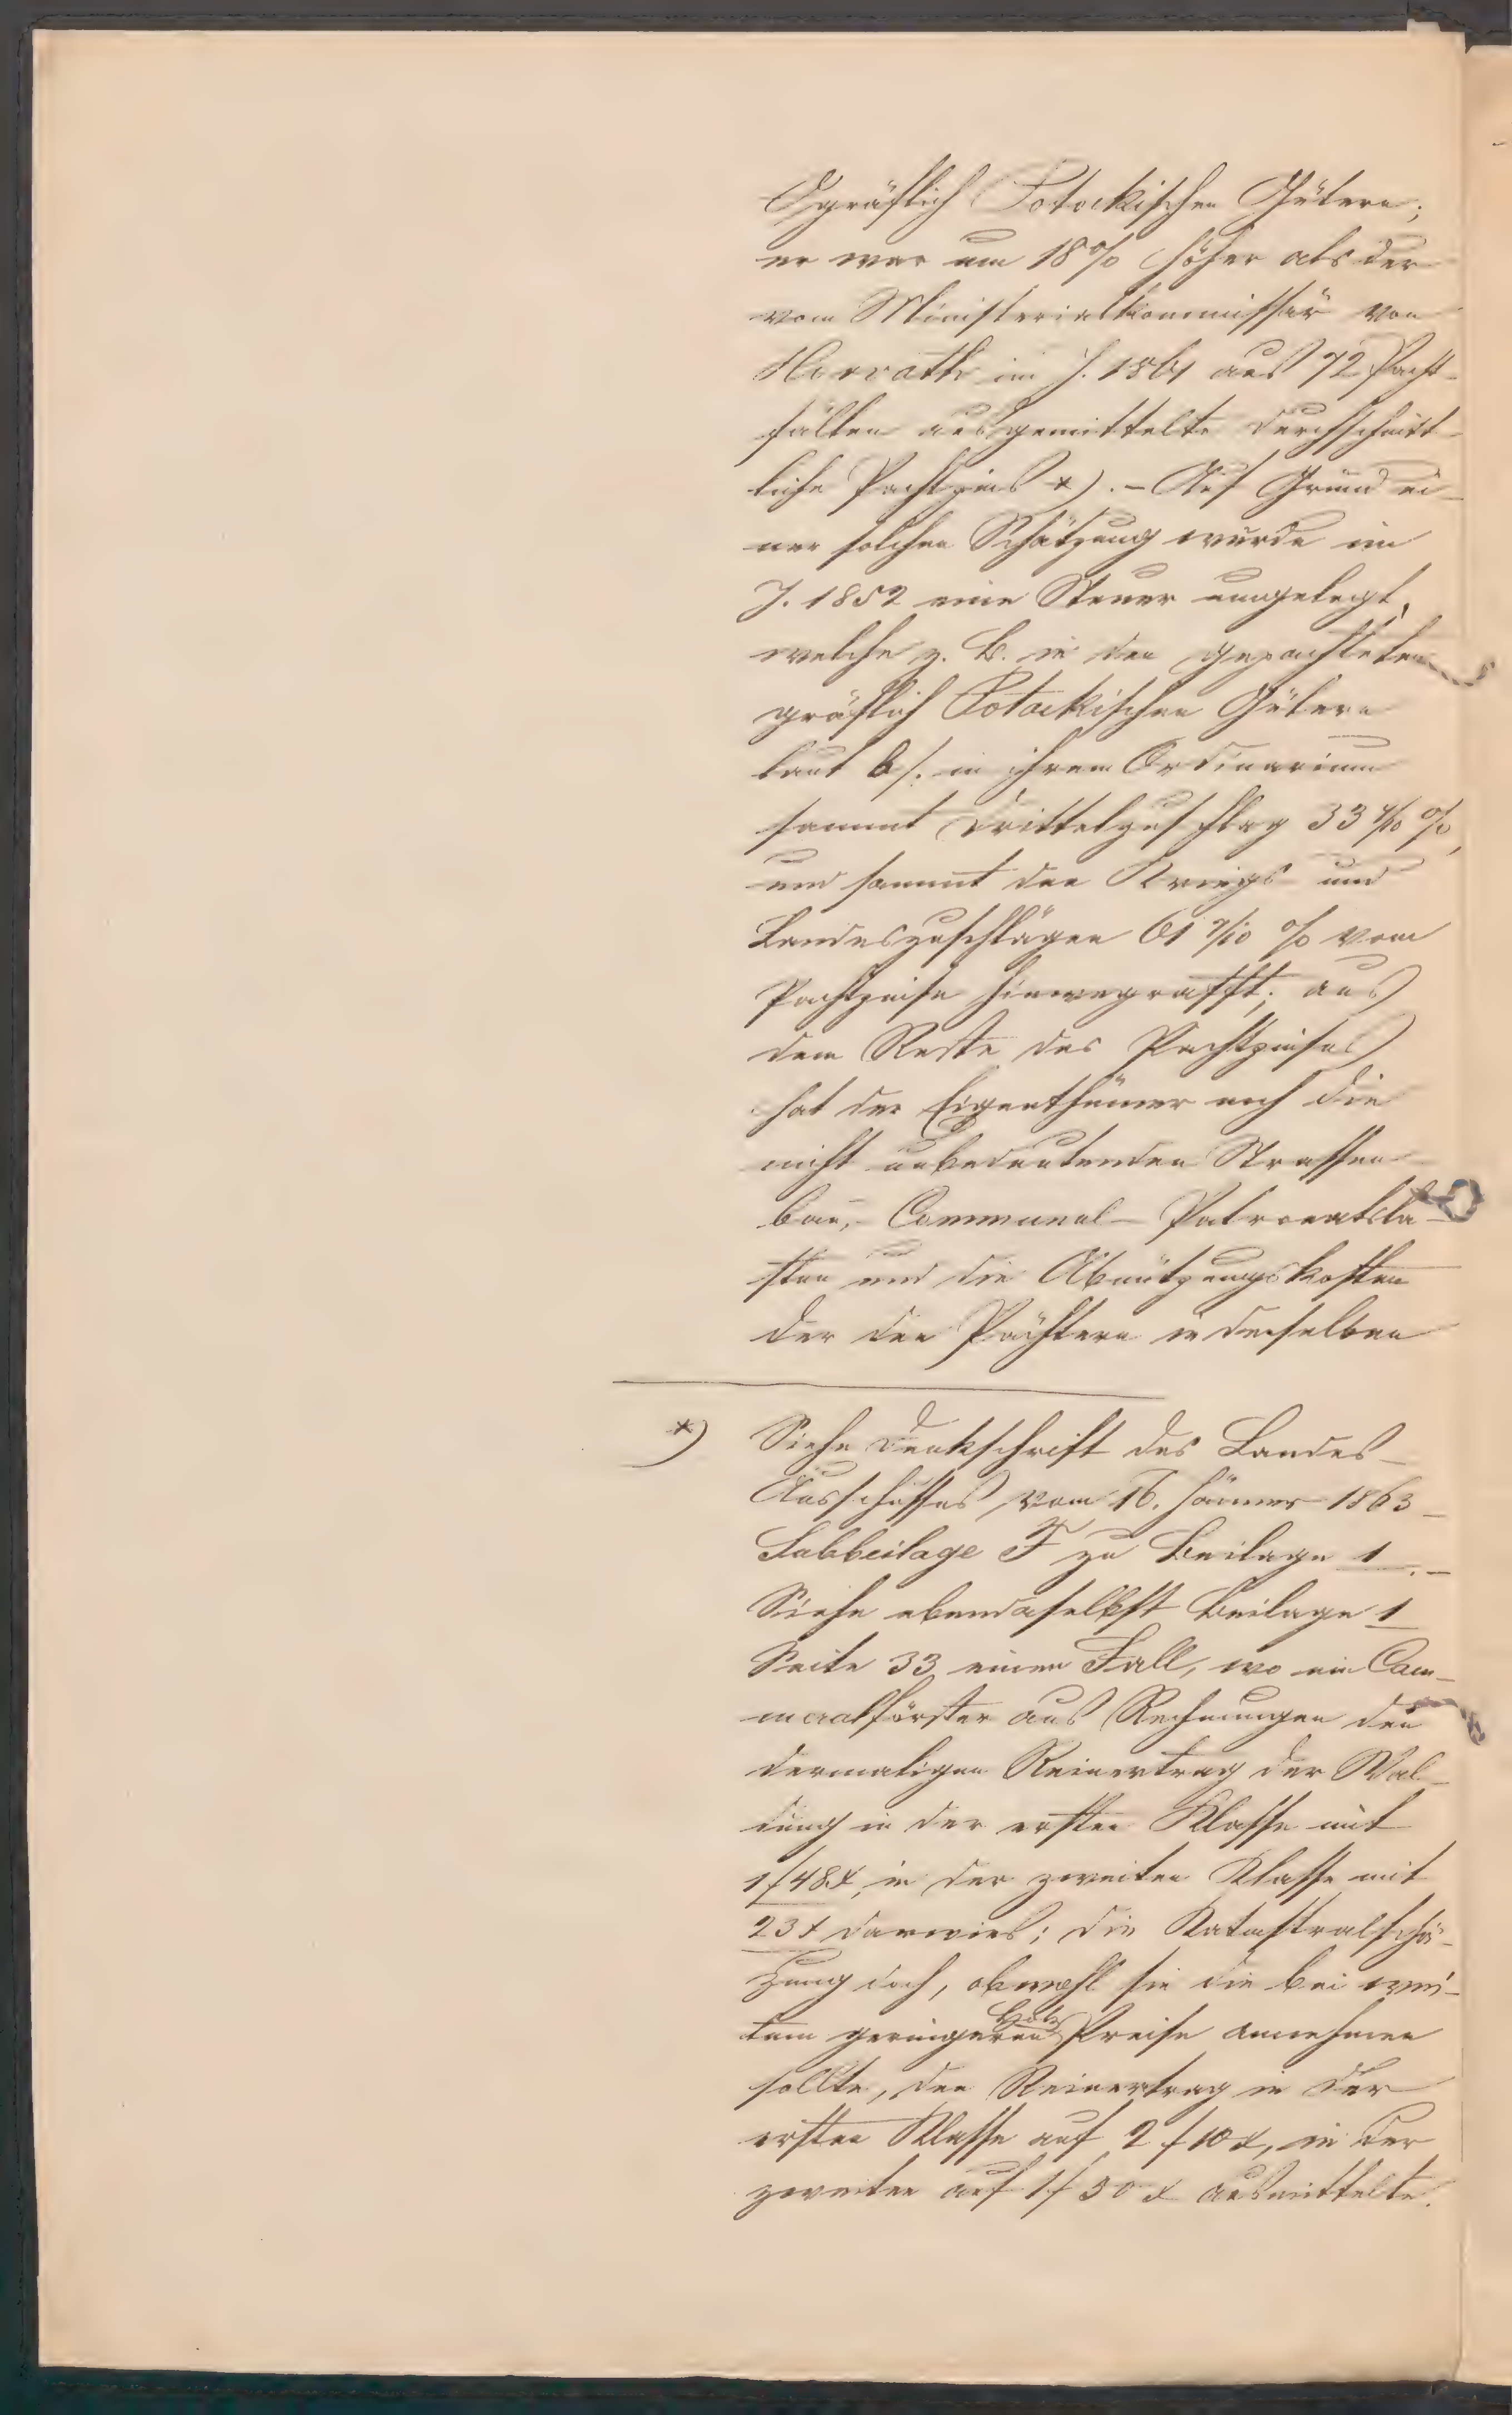 gräflich Potockischen Gütern;
er war um 18% höher als der
vom Ministerialkommissär von
Horvath im J. 1861 aus 72 Pacht-
fällen ausgemittelte durchschnitt-
liche Pachtzins *). – Auf Grund ei-
ner solchen Schätzung wurde im
J. 1852 eine Steuer umgelegt,
welche z. B. in den gepachteten
gräflich Potockischen Gütern
laut b/. in ihrem Ordinarium
sammt Drittelzuschlag 33 %,
und sammt den Kriegs- und
Landeszuschlägen 61 % vom
Pachtzinse hinwegrafft; aus
dem Reste des Pachtzinses
hat der Eigenthümer noch die
nicht unbedeutenden Strassen-
bau,- Communal- Patronatsla-
sten und die Abnützungskosten
der den Pächtern in denselben
*) Siehe Denkschrift des Landes-
Ausschusses vom 16. Jänner 1863 –
Subbeilage F zu Beilage 1. –
Siehe ebendaselbst Beilage 1
Seite 33 einen Fall, wo ein Cam-
meralförster aus Rechnungen den
dermaligen Reinertrag der Wal-
dung in der ersten Klasse mit
1 f 48 x, in der zweiten Klasse mit
23 x darwies; die Katastralschä-
tzung doch, obwohl sie die bei wei-
tem geringeren Holz Preise annehmen
sollte, den Reinertrag in der
ersten Klasse auf 2 f 10 x, in der
zweiten auf 1 f 30 x ausmittelte.